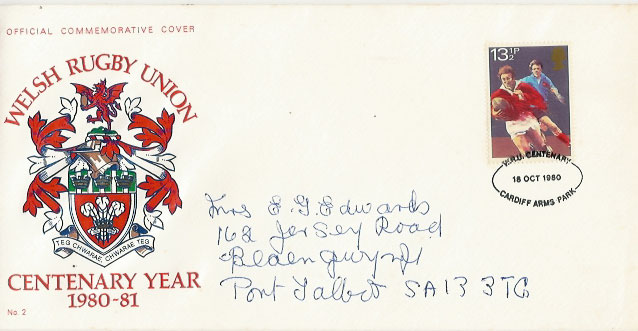 OFFICIAL COMMEMORATIVE COVER
WELSH RUGBY UNION
TEG CHWARAE, CHWARAE TEG
CENTENARY YEAR
1980-81
No. 2
13½P
W.R.U. CENTENARY
18 OCT 1980
CARDIFF ARMS PARK
Mrs E. G. Edwards
162 Jersey Road
Blaengwynfi
Port Talbot SA13 3TG